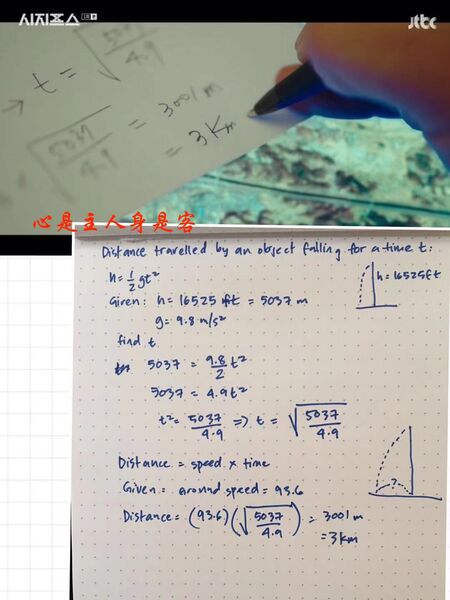 시지프스 15
jtbc
→ t = √5037/4.9
√5037/4.9 = 3001 m
= 3 Km
心是主人身是客
Distance travelled by an object falling for a time t:
h = 1/2 gt²
Given: h = 16525 ft = 5037 m
h = 16525 ft
g = 9.8 m/s²
find t
5037 = 9.8/2 t²
5037 = 4.9t²
t² = 5037/4.9 => t = √5037/4.9
Distance = speed × time
Given = ground speed = 93.6
?
Distance = (93.6)(√5037/4.9) = 3001 m
= 3 km